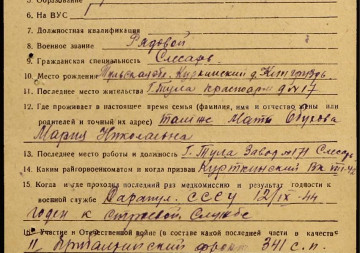 5. Образование
6. На ВУС
7. Должностная квалификация
8. Военное звание Рядовой
9. Гражданская специальность Слесарь
10. Место рождения Тульская обл. Куркинский
11. Последнее место жительства г. Тула 17
12. Где проживает в настоящее время семья (фамилия, имя и отчество жены или
родителей и точный их адрес) Там же Мать
Мария Николаевна
13. Последнее место работы и должность г. Тула Завод Слесарь
14. Каким райгорвоенкоматом и когда призван Куркинский
15. Когда и где проходил последний раз медкомиссию и результат годности к
военной службе 12/IX-44
годен к строевой службе
16. Участие в Отечественной войне (в составе какой последней части в качестве
фронт 341 с.п.